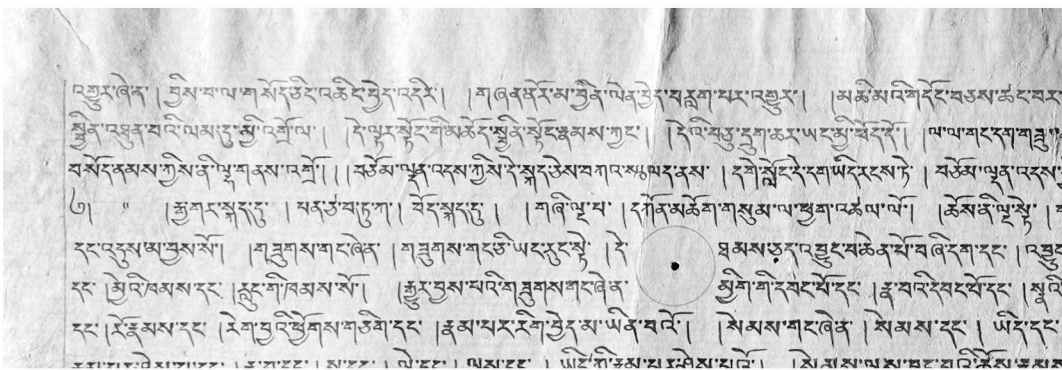 འགྱུར་ཞེན། །བྱིས་པ་ལ་གསོད་ཅིང་འཆིང་བྱེད་འདིར། །གཞན་ནོར་མ་བྱིན་ལེན་བྱེད་བརླག་པར་འགྱུར། །མཆི་མའི་གདོང་བཅས་ཚང་བར་
སྦྱིན་འཐུན་བའི་ལམ་དུ་མྱི་འགྲོ་ལ། །དེ་ལྟར་སྟོང་གི་མཆོད་སྦྱིན་སྟོང་རྣམས་ཀྱང་། །དེའི་བཅུ་དྲུག་ཆར་ཡང་མྱི་ཕོད་དོ། །ལ་ལ་གང་དག་
བསོད་ནམས་ཀྱིས་ནི་ལྷ་གནས་འགྲོ།། །།བཅོམ་ལྡན་འདས་ཀྱིས་དེ་སྐད་ཅེས་བཀའ་སྩལད་ནས། དགེ་སློང་དེ་དག་ཡིད་རངས་ཏེ། །བཅོམ་ལྡན་འདས་
༄། །རྒྱ་གར་སྐད་དུ། །པན་ཙ་བ་ཏུ་ཀ།། བོད་སྐད་དུ། །གཞི་ལྔ་པ། །དཀོན་མཆོག་གསུམ་ལ་ཕྱག་འཚལ་ལོ། །ཆོས་ནི་ལྔ་སྟེ།
དང་འདུས་མ་བྱས་སོ། །གཟུགས་གང་ཞེ་ན། །གཟུགས་གང་ཅི་ཡང་རུང་སྟེ། །དེ་ ཐམས་ཅད་འབྱུང་བ་ཆེན་པོ་བཞི་དག་དང་།
དང་ །མྱེའི་ཁམས་དང་ །རླུང་གི་ཁམས་སོ། །རྒྱུར་བྱས་པའི་གཟུགས་གང་ཞེ་ན་ མྱིག་གི་དབང་པོ་དང་ །རྣ་བའི་དབང་པོ་དང་
དང་ །རོ་རྣམས་དང་ །རེག་བྱའི་ཕྱོགས་གཅིག་དང་ །རྣམ་པར་རིག་བྱེད་མ་ཡིན་བའོ། །སེམས་གང་ཞེ་ན། །སེམས་དང་ །ཡིད་དང་